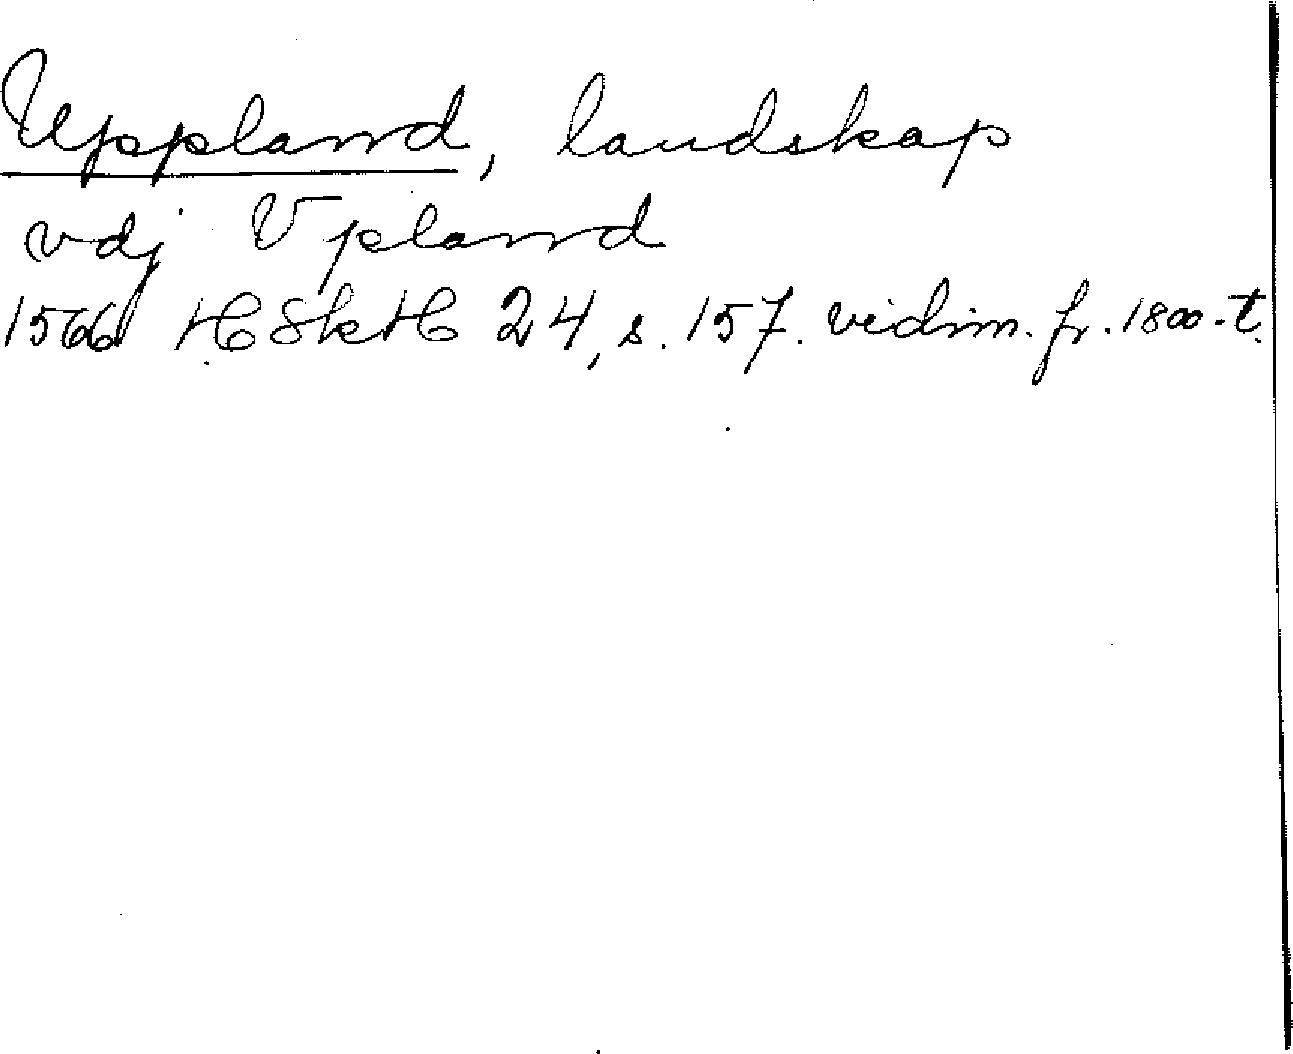 Uppland, landskap
vdj Vpland
1566 HSkH 24, s. 157. vidim. fr. 1800-t.